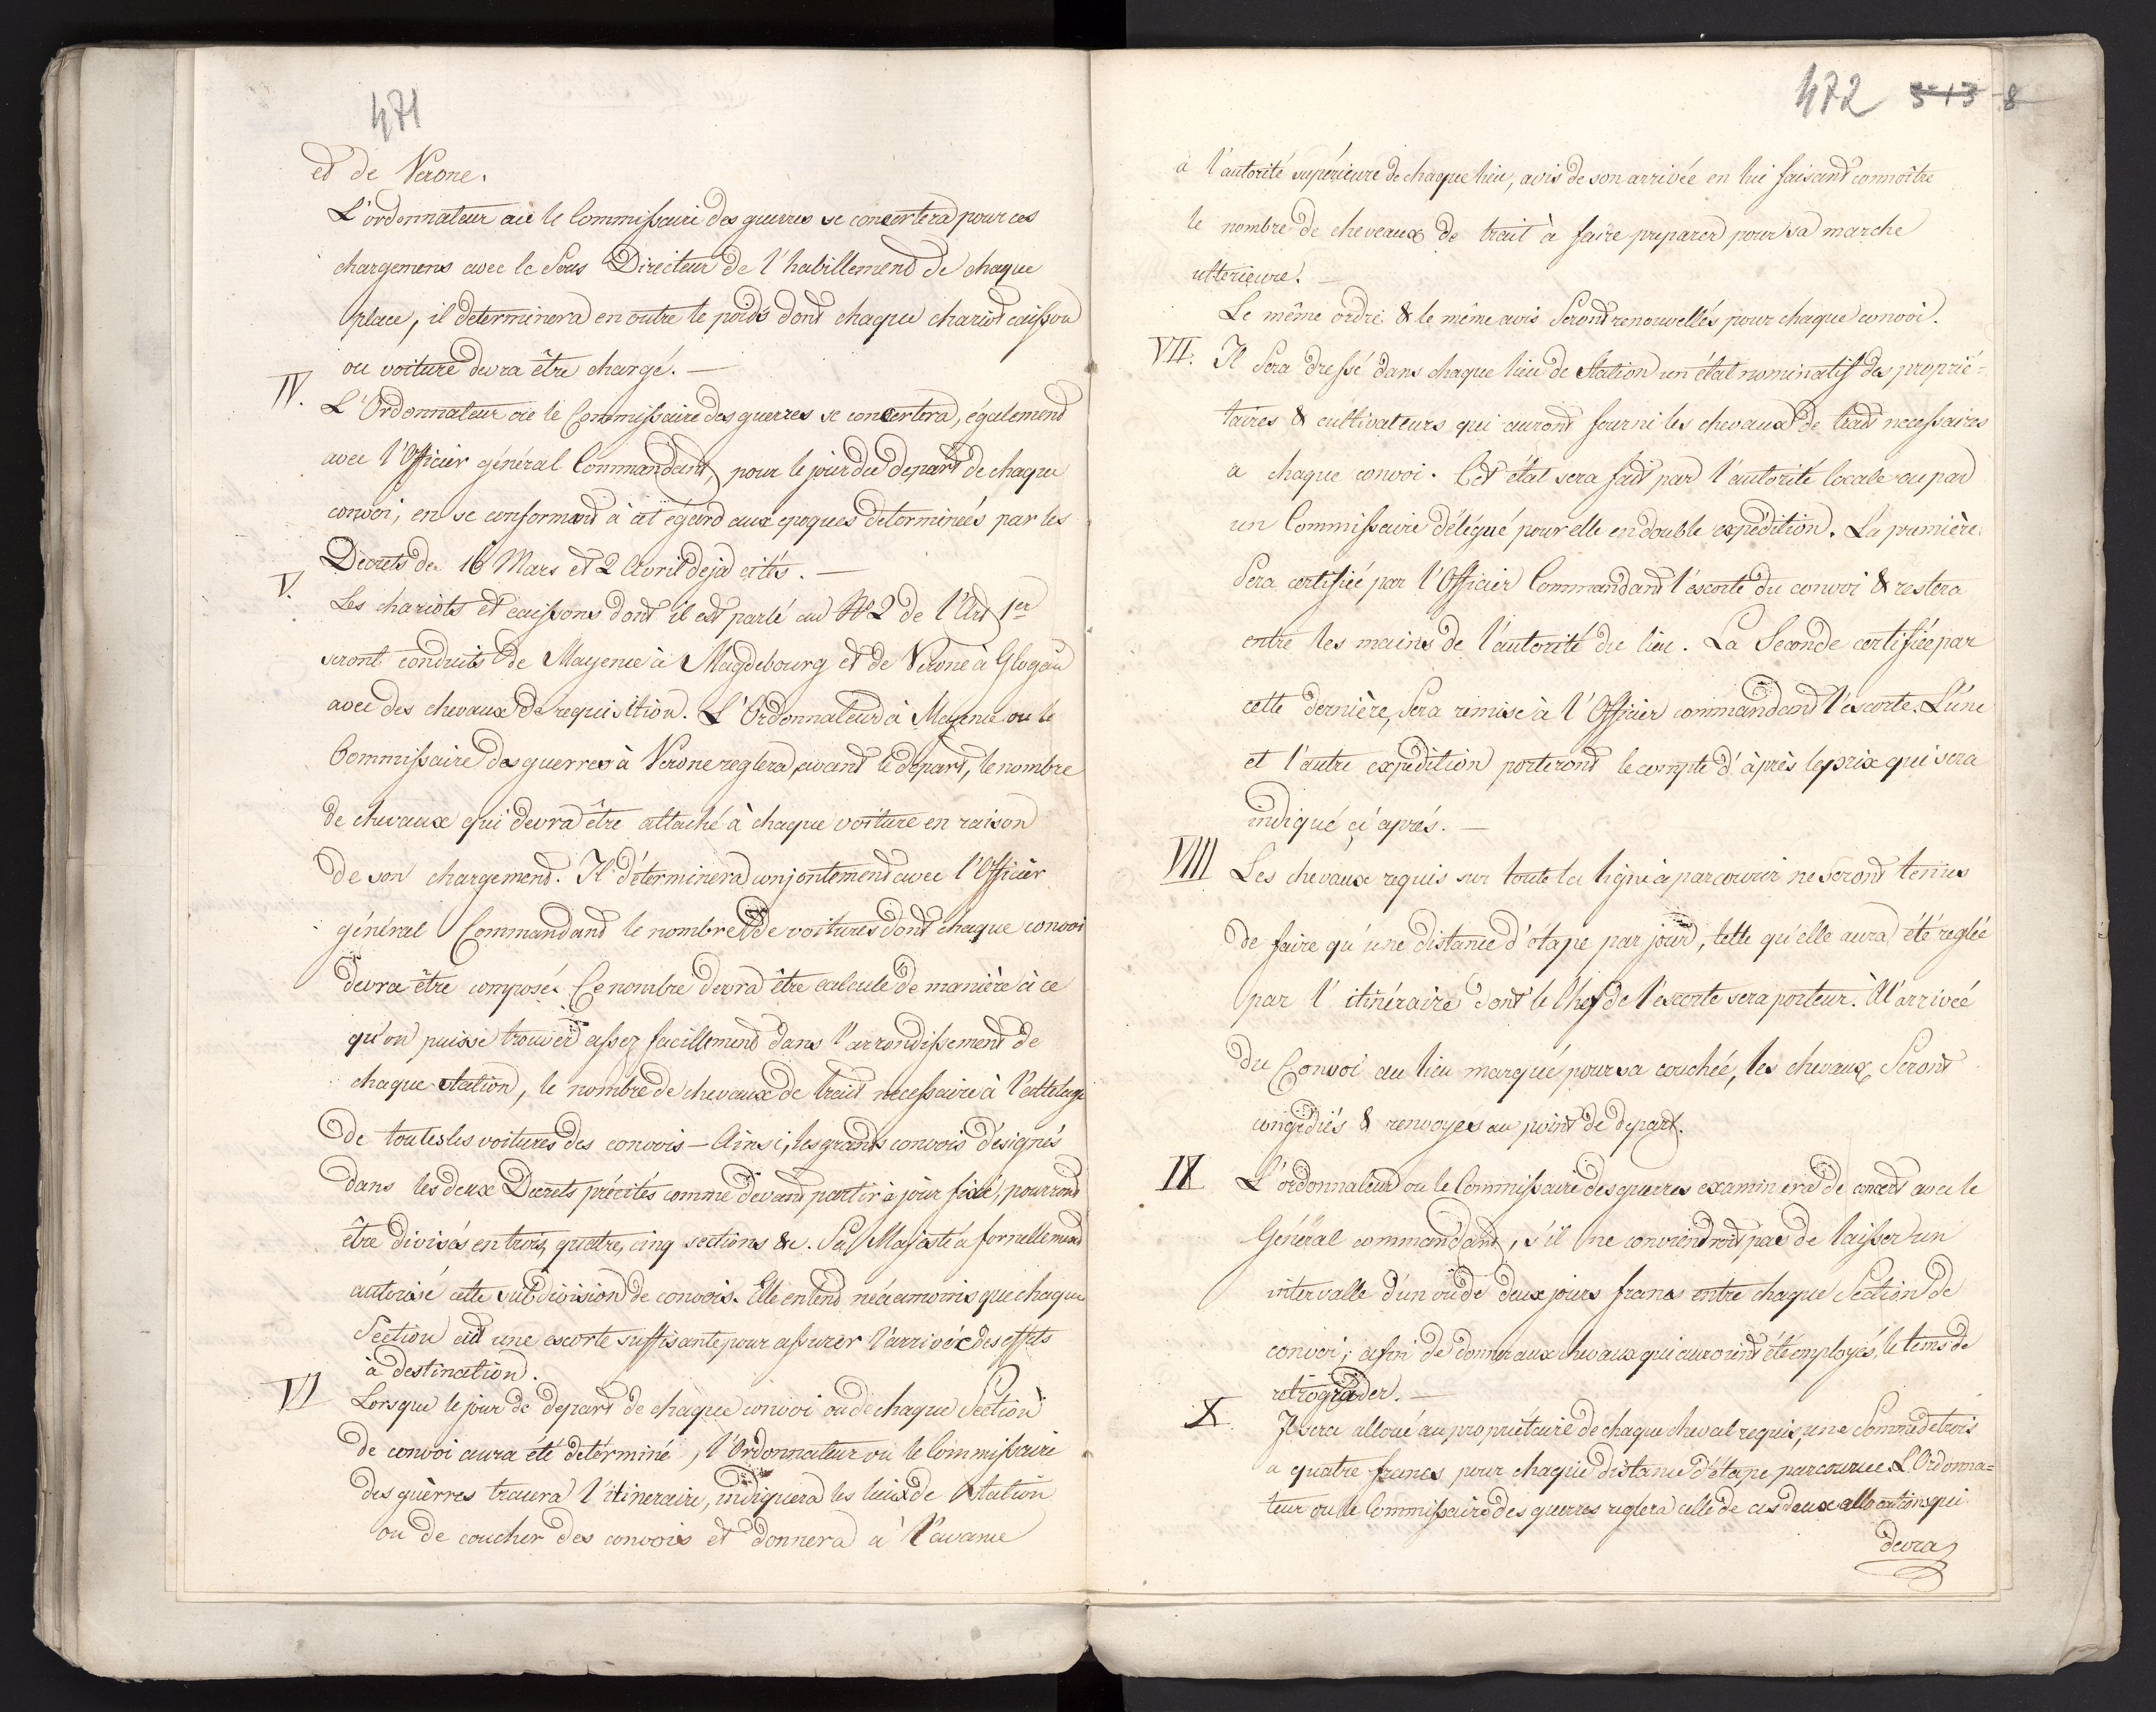 471
et de Verone.
L'ordonnateur ou le Commissaire des guerres se concertera pour ces
chargemens avec le Sous Directeur de l'habillement de chaque
place, il determinera en outre le poids dont chaque chariot caisson
ou voiture devra être chargé. —
IV.
L'Ordonnateur ou le Commissaire des guerres se concertera, également
avec l'Officier général Commandant, pour le jour du depart de chaque
convoi, en se conformant à cet égard aux epoques determinées par les
Decrets des 16 Mars et 2 Avril deja cités. —
V.
Les chariots et caissons dont il est parlé au No 2 de l'Art 1er
seront conduits de Mayence à Magdebourg et de Verone à Glogau
avec des chevaux de requisition. L'Ordonnateur à Mayence ou le
Commissaire des guerres à Verone reglera, avant le depart, le nombre
de chevaux qui devra être attaché à chaque voiture en raison
de son chargement. Il déterminera conjontement avec l'Officier
général Commandant le nombre de voitures dont chaque convoi
devra être composé. Ce nombre devra être calculé de manière à ce
qu'on puisse trouver assez facillement dans l'arrondissement de
chaque station, le nombre de chevaux de trait necessaire à l'attelage
de toutes les voitures des convois — Ainsi, les grands convois désignés
dans les deux Decrets précités comme devant partir à jour fixé, pourront
être divisés en trois, quatre, cinq sections &c. Sa Majesté a formellement
autorisé cette subdivision de convois. Elle entend néeamoins que chaque
Section ait une escorte suffisante pour assurer l'arrivée des effets
à destination.
VI
Lorsque le jour de depart de chaque convoi ou de chaque Section
de convoi aura été detérminé, l'Ordonnateur ou le Commissaire
des guèrres tracera l'itineraire, indiquera les lieux de Station
ou de coucher des convois et donnera a l'avance
472 513 8
a l'autorité supérieure de chaque lieu, avis de son arrivée en lui faisant connoître
le nombre de cheveaux de trait à faire preparer pour sa marche
ulterieure. —
Le même ordre & le même avis Seront renouvellés pour chaque convoi.
VII. Il Sera dressé dans chaque lieu de Station un état nominatif des proprié=
taires & cultivateurs qui auront fourni les chevaux de trait necessaires
a chaque convoi. Cet état sera fait par l'autorité locale ou par
un Commissaire délégué pour elle en double expédition. La première
Sera certifiée par l'Officier Commandant l'escorte du convoi & restera
entre les mains de l'autorité du lieu. La Seconde certifiée par
cette dernière, Sera remise à l'Officier commandant l'escorte. L'une
et l'autre expédition porteront le compte d'après le prix qui sera
indiqué ci après. —
VIII Les chevaux requis sur toute la ligne à parcourir ne Seront tenus
de faire qu'une distance d'étape par jour, telle qu'elle aura été reglée
par l'itinéraire dont le Chef de l'escorte sera porteur. A l'arrivée
du Convoi au lieu marqué pour sa couchée, les chevaux Seront
congédiés & renvoyes au point de depart.
IX L'ordonnateur ou le Commissaire des guerres examinera de concert avec le
Général commandant, s'il ne conviendroit pas de laisser un
intervalle d'un ou de deux jours francs entre chaque Section de
convoi, afin de donner aux chevaux qui auroient été employés, le tems de
retrograder. —
X. Il sera alloué au propriétaire de chaque cheval requis, une Somme de trois
a quatre francs pour chaque distance d'étape parcourue. L'Ordonna=
teur ou le Commissaire des guerres reglera celle de ces deux allocations qui
devra